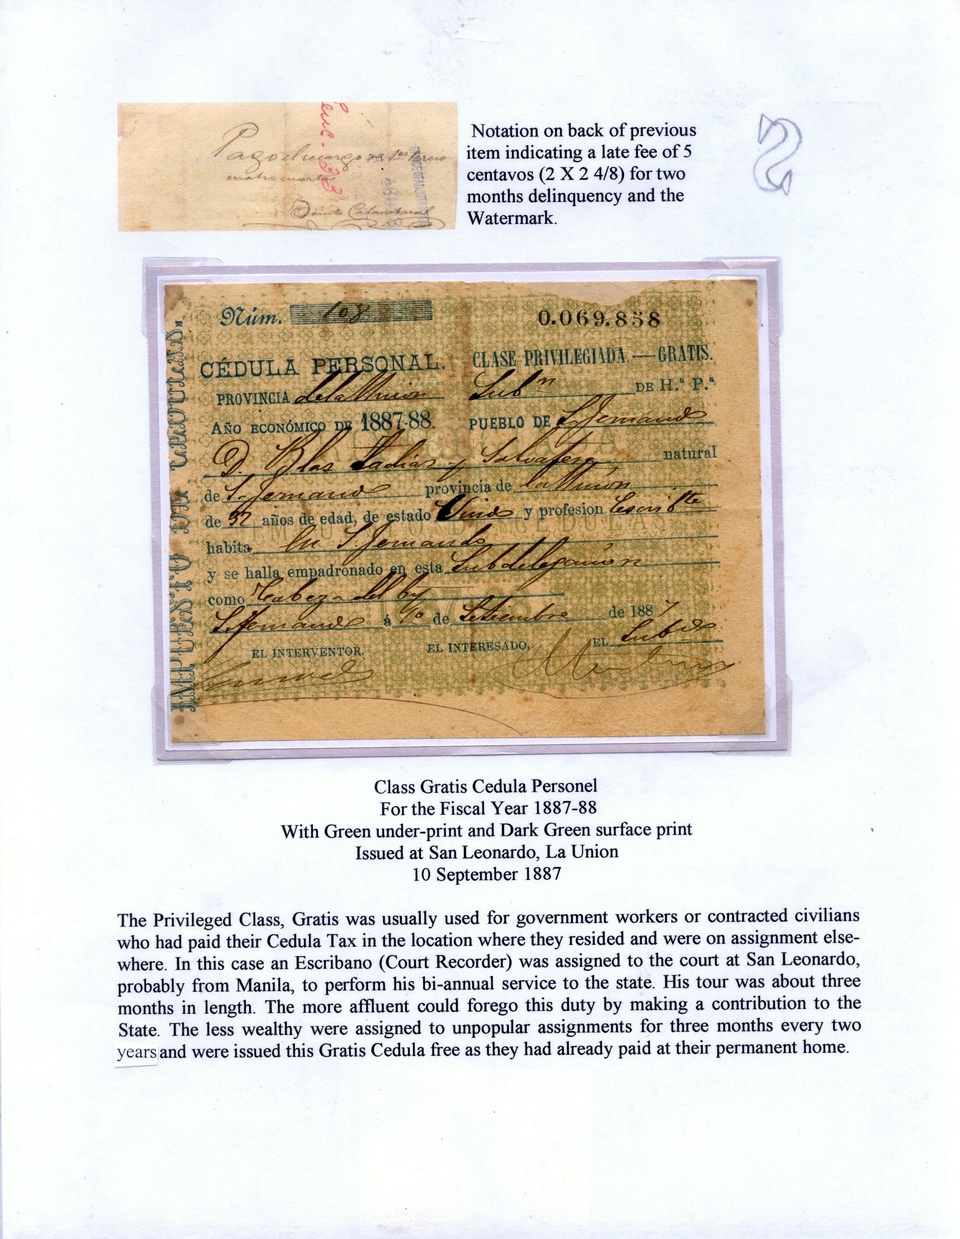 Pago el recargo
cuatro cuartos
Notation on back of previous
item indicating a late fee of 5
centavos (2 X 2 4/8) for two
months delinquency and the
Watermark.
IMPUESTO DE CÉDULAS
Núm. 108
0.069.858
CÉDULA PERSONAL.
CLASE PRIVILEGIADA.—GRATIS.
PROVINCIA de la Union Subn DE H.ª P.ª
AÑO ECONÓMICO DE 1887-88. PUEBLO DE S. Fernando
D. Blas y natural
de S. Fernando provincia de la Union
de 32 años de edad, de estado y profesion Escribte
habita En S. Fernando
y se halla empadronado en esta Subdelegacion
como Cabeza del
S. Fernando á 10 de Setiembre de 1887
EL INTERVENTOR, EL INTERESADO, EL Subdo
Class Gratis Cedula Personel
For the Fiscal Year 1887-88
With Green under-print and Dark Green surface print
Issued at San Leonardo, La Union
10 September 1887
The Privileged Class, Gratis was usually used for government workers or contracted civilians
who had paid their Cedula Tax in the location where they resided and were on assignment else-
where. In this case an Escribano (Court Recorder) was assigned to the court at San Leonardo,
probably from Manila, to perform his bi-annual service to the state. His tour was about three
months in length. The more affluent could forego this duty by making a contribution to the
State. The less wealthy were assigned to unpopular assignments for three months every two
years and were issued this Gratis Cedula free as they had already paid at their permanent home.